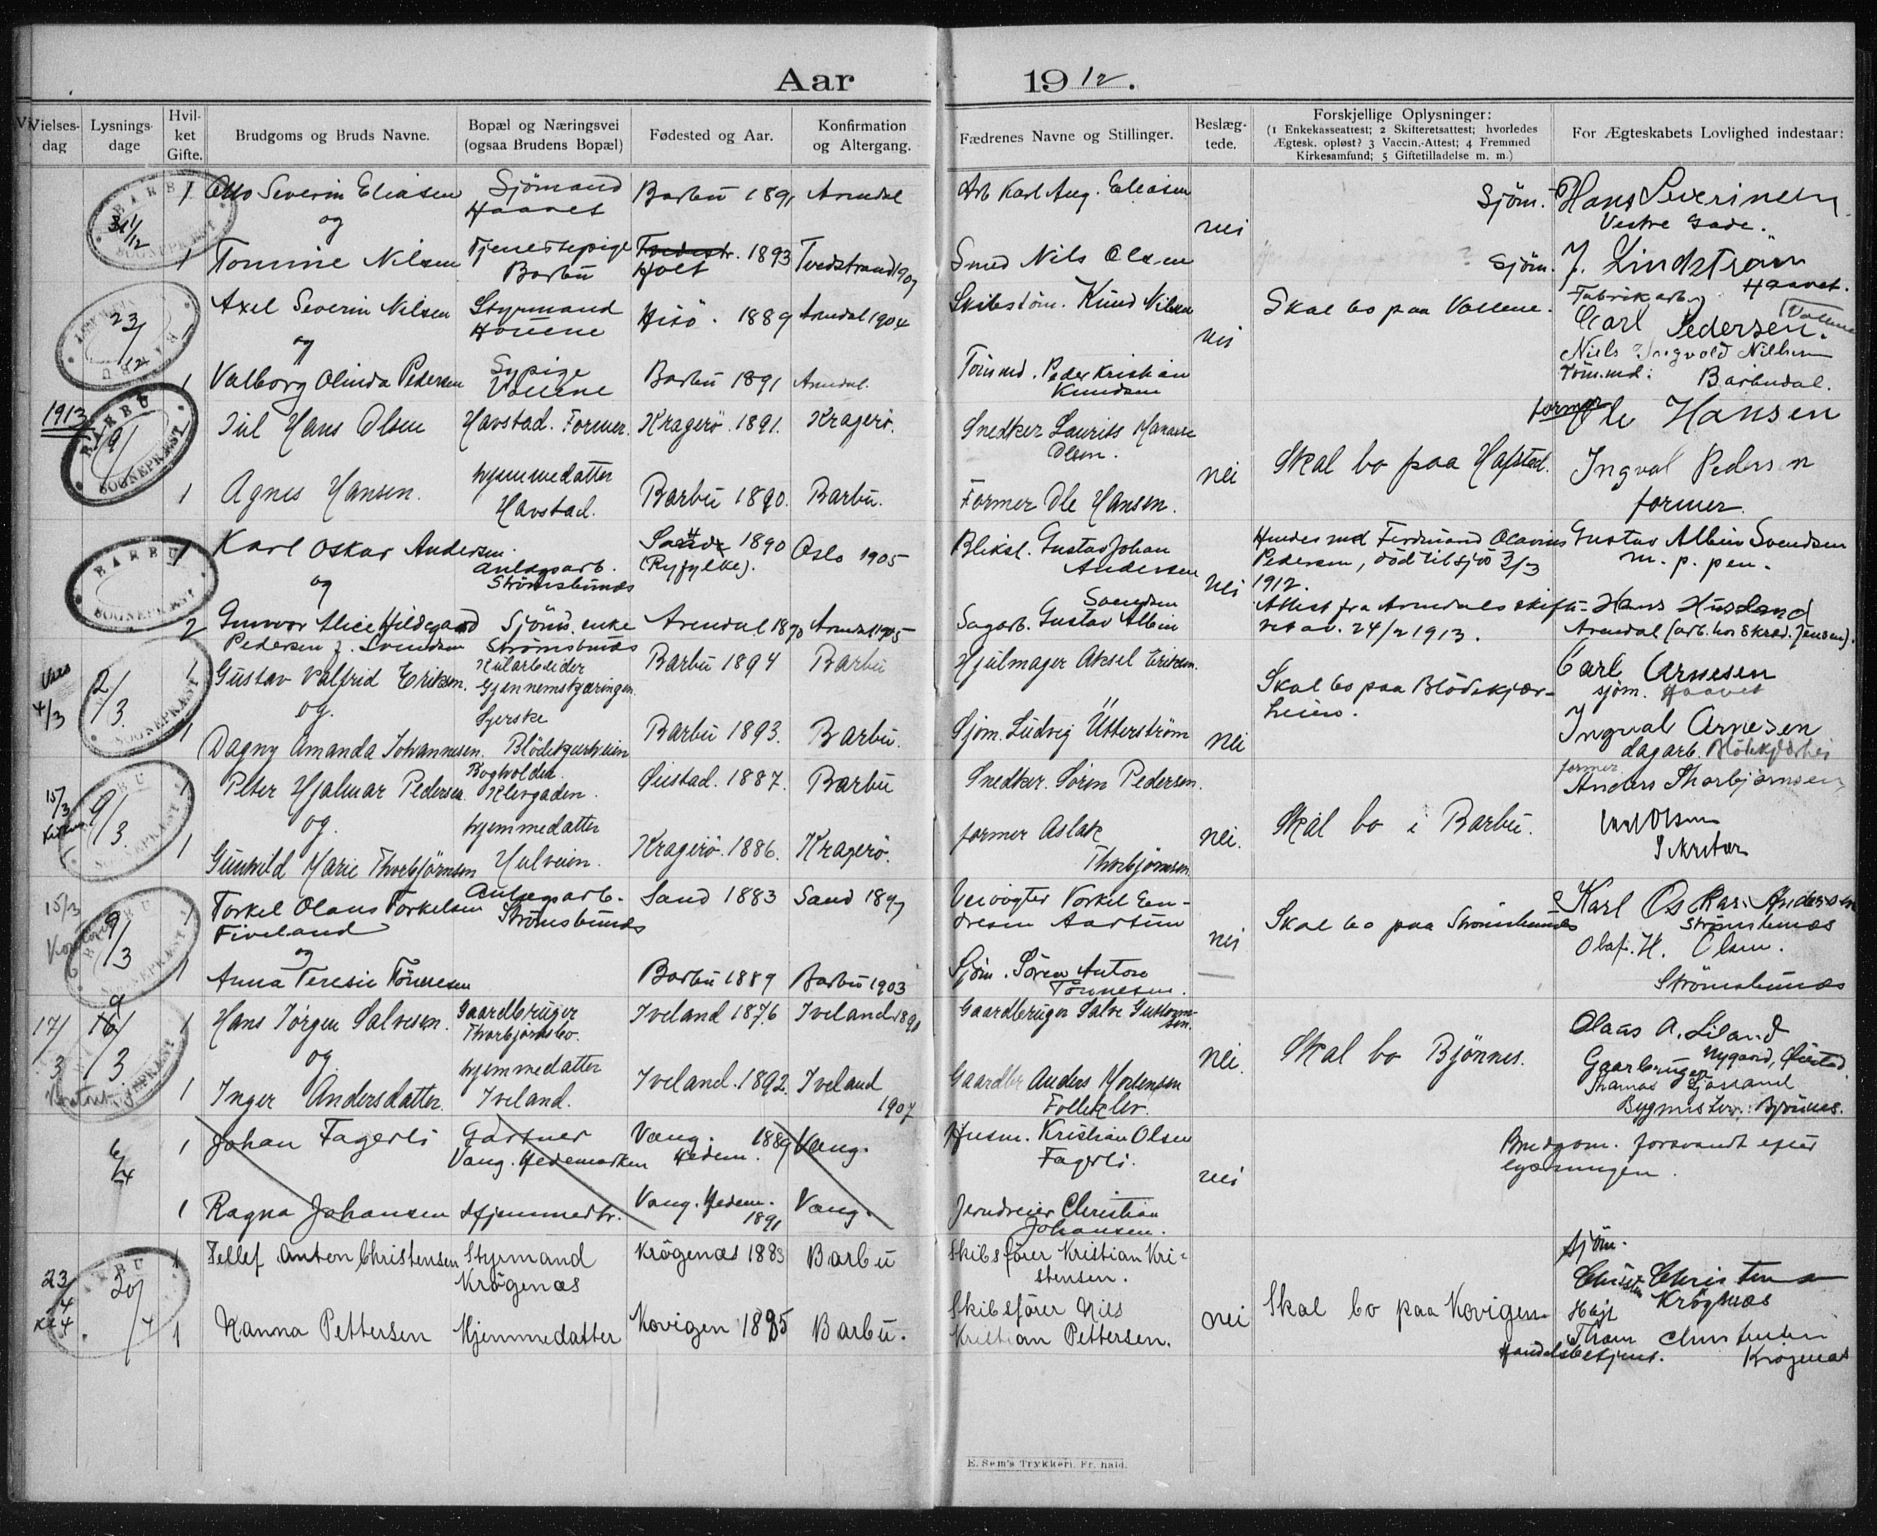 Aar 1912.
Vielses-dag
Lysnings-dage
Hvil-ket Gifte.
Brudgoms og Bruds Navne.
Bopæl og Næringsvei (ogsaa Brudens Bopæl)
Fødested og Aar.
Konfirmation og Altergang.
Fædrenes Navne og Stillinger.
Beslæg-tede.
Forskjellige Oplysninger:
(1 Enkekasseattest; 2 Skifteretsattest; hvorledes Ægtesk. opløst? 3 Vaccin.-Attest; 4 Fremmed Kirkesamfund; 5 Giftetilladelse m. m.)
For Ægteskabets Lovlighed indestaar:
1 Otto Severin Eliasen Sjömand Haavet Barbu 1891 Arendal Arb Karl Aug. Eliasen nei Sjöm. Hans Severinsen
og Vestre Gade.
1 Tomine Nilsen Tjenestepige Barbu Holt 1893 Tvedstrand 1907 Smed Nils Olsen Sjöm. J. Lindstrøm
Haavet.
23/12 Axel Severin Nilsen Styrmand Hisö. 1889 Arendal 1904 Skibstöm. Knud Nilsen nei Skal bo paa Vollene. Fabrikarb.
og Carl Pedersen. Vollene
1 Valborg Olinda Pedersen Sypige Vollene Barbu 1891 Arendal. Tömmd. Peder Kristian Knudsen Niels Ingvold Nilsen
Tömmd. Barbudal.
1913
Jul Hans Olsen Havstad. Former. Kragerö. 1891. Kragerö. Snedker Laurits Olsen. nei Skal bo paa Hafstad. former Ole Hansen
1 Agnes Hansen. hjemmedatter Havstad. Barbu 1890. Barbu. Former Ole Hansen. Ingval Pedersen
former.
1 Karl Oskar Andersen Anlægsarb. Strömsbunæs Sand 1890 (Ryfylke). Oslo 1905 Bliksl. Gustav Johan Andersen nei Hendes med Ferdinand Olavius Pedersen, död tilsjös 3/3 1912. Gustav Albin Svendsen
og m. p. pen.
2 Gunvor Alice Hildegaard Pedersen f. Svendsen Sjöm. enke Strömsbunæs Arendal 1890 Arendal 1905 Sagarb. Gustav Albin Svendsen Attest fra Arendals skifte-ret av. 24/2 1913. Hans Husland
Arendal (arb. hos Skræd. Jensen).
4/3 2/3. 1 Gustav Valfrid Eriksen. Gjennemskjæringen Barbu 1894 Barbu Hjulmager Aksel Eriksen. Skal bo paa Blödekjær-heien. Carl Arnesen
og. sjöm. Haavet
1 Dagny Amanda Johannesen. Syerske Blödekjærheien Barbu 1893. Barbu. Sjöm. Ludvig Ütterström nei Ingval Arnesen
dagarb. Blödekjærhei
15/3 9/3 Peter Hjalmar Pedersen. Bogholder. Øiestad. 1887. Barbu Snedker. Sören Pedersen. nei. Skal bo i Barbu. former
og. Anders Thorbjörnsen
1 Gunhild Marie Thorbjörnsen hjemmedatter Kragerö. 1886. Kragerö. former Aslak Thorbjörnsen Carl Olsen
Sekretær
15/3 9/3 1 Torkel Olaus Torkelsen Fiveland Anlægsarb. Strömsbunæs Sand 1883 Sand 1897 Veivogter Torkel nei Skal bo paa Strömsbunæs Karl Oskar Andersen
og Strömsbunæs
1 Anna Teresie Tönnesen Barbu 1889 Barbu 1903 Sjöm. Sören Anton Tönnesen. Olaf. H. Olsen.
Strömsbunæs
17/3 9/3 1 Hans Jörgen Salvesen. Gaardbruger Iveland 1876 Iveland Gaardbruger Salve nei. Skal bo Bjönnes. Olaus A. Liland
og Gaardbruger Nygaard, Øiestad
1 Inger Andersdatter. hjemmedatter Iveland. Iveland. 1892. Iveland 1907 Gaardbr Anders Mortensen Thomas
Bygmester. Bjönnes.
6/4 1 Johan Fagerli Gartner Vang. Hedemarken Vang. Hedem. 1889 Vang. Husm. Kristian Olsen Fagerli. nei Brudgom. forsvandt efter lysningen.
1 Ragna Johansen Hjemmedtr. Vang. Hedem. 1891 Vang. Jerndreier Christian Johansen.
23/4 20/4 1 Tellef Anton Christensen Styrmand Krögenæs Krögenæs 1883 Barbu Skibsförer Kristian Kri-stensen. nei Skal bo paa Kovigen Sjöm.
Krögnæs
1 Nanna Pettersen Hjemmedatter Kovigen 1885 Barbu. Skibsförer Nils Kristian Pettersen. Christensen
Handelsbetjent. Krögenæs
BARBU SOGNEPRÆST
E. Sem's Trykkeri. Fr.hald.